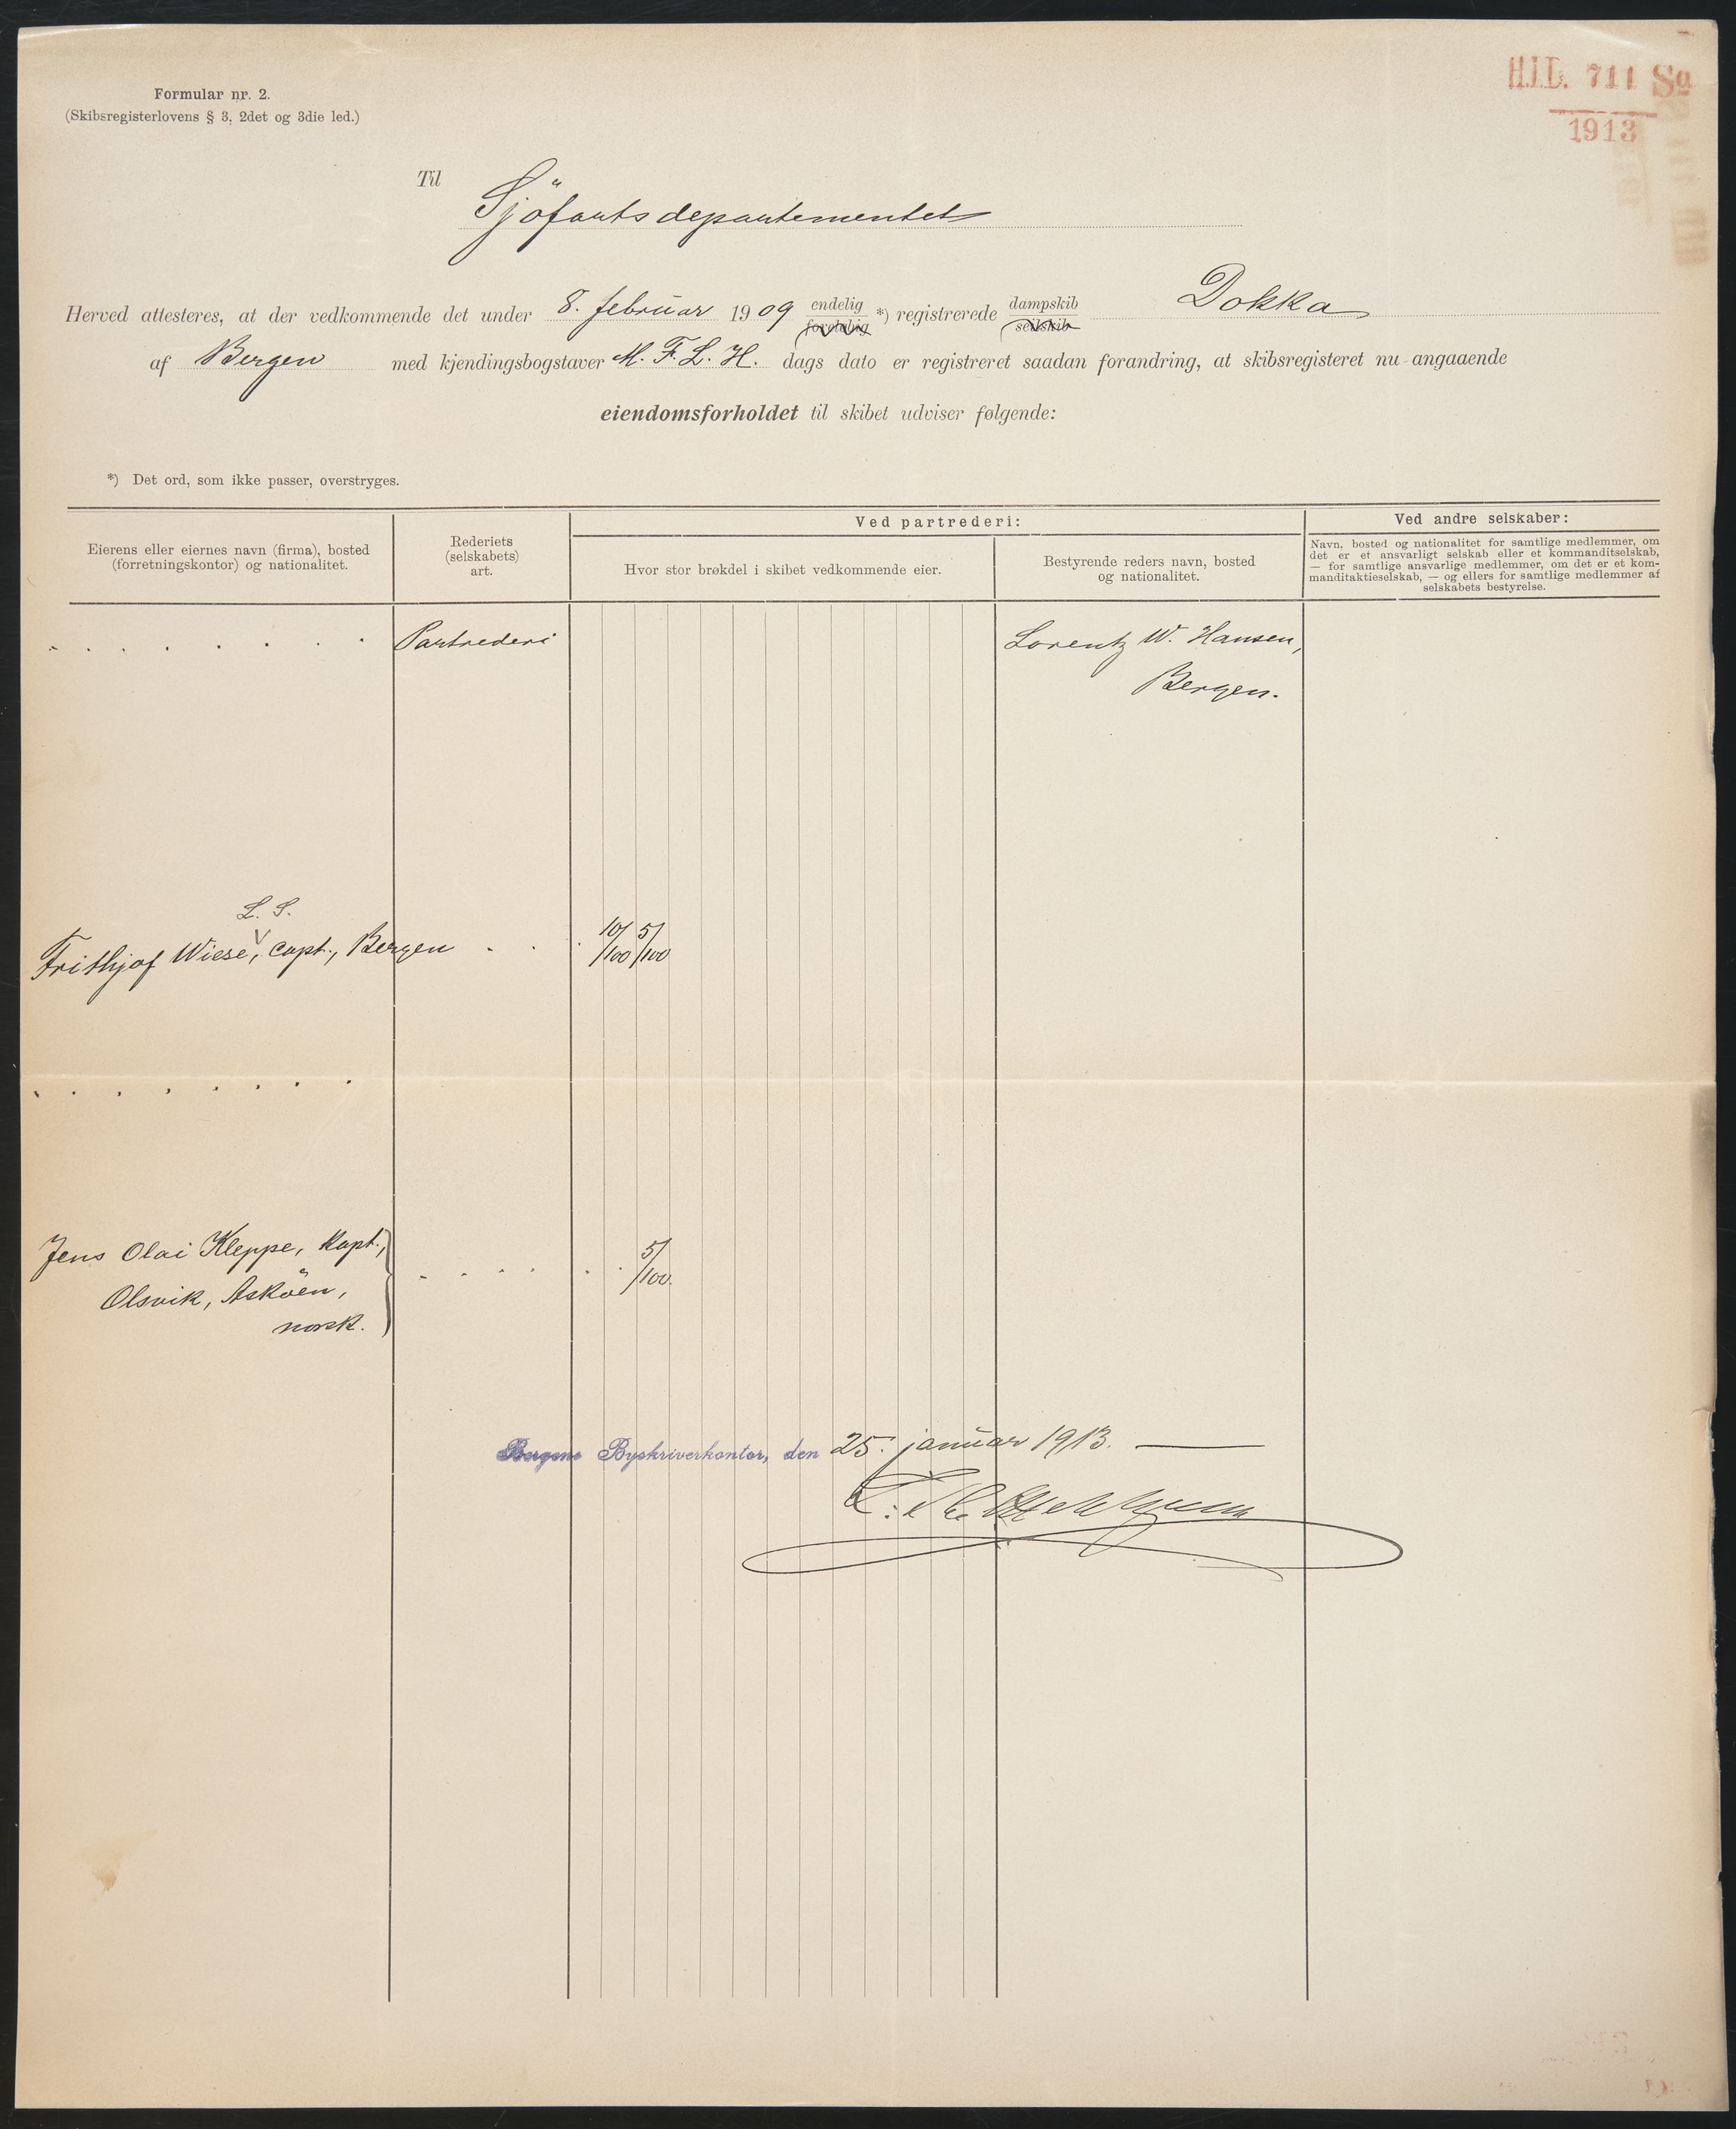 Formular nr. 2.
(Skibsregisterlovens § 3, 2det og 3die led.)
H.I.D. 711 Sø
1913
Til
Sjöfartsdepartementet
Herved attesteres, at der vedkommende det under 8. februar 1909 endelig foreløbig *) registrerede dampskib seilskib Dokka
af Bergen med kjendingsbogstaver M. F. L. H. dags dato er registreret saadan forandring, at skibsregisteret nu angaaende
eiendomsforholdet til skibet udviser følgende:
*) Det ord, som ikke passer, overstryges.
Eierens eller eiernes navn (firma), bosted
(forretningskontor) og nationalitet.
Rederiets
(selskabets)
art.
Ved partrederi:
Hvor stor brøkdel i skibet vedkommende eier.
Bestyrende reders navn, bosted
og nationalitet.
Ved andre selskaber:
Navn, bosted og nationalitet for samtlige medlemmer, om
det er et ansvarligt selskab eller et kommanditselskab,
— for samtlige ansvarlige medlemmer, om det er et kom-
manditaktieselskab, — og ellers for samtlige medlemmer af
selskabets bestyrelse.
. . . . . . . Partrederi Lorentz W. Hansen,
Bergen.
L. S.
Frithjof Wiese, capt., Bergen . . . 10/100 5/100
. . . . . . . .
Jens Olai Kleppe, Kapt.,
Olsvik, Asköen, . . . . . . 5/100.
norsk.
Bergens Byskriverkontor, den 25. januar 1913.